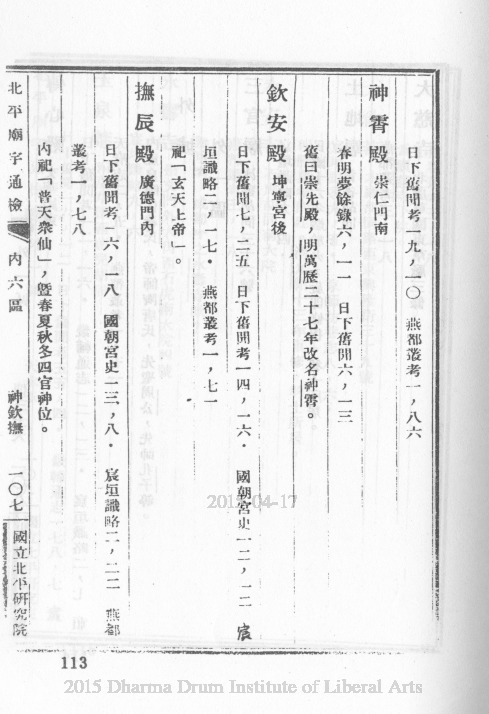 日下舊聞考一九，一〇　燕都叢考一，八六
神霄殿　崇仁門南
春明夢餘錄六，一一　日下舊聞六，一三
舊曰崇先殿，明萬歷二十七年改名神霄。
欽安殿　坤寧宮後
日下舊聞七，二五　日下舊聞考一四，一六．　國朝宮史一二，一二　宸
垣識略二，一七．　燕都叢考一，七一
祀「玄天上帝」。
撫辰殿　廣德門內
日下舊聞考一六，一八　國朝宮史一三，八．　宸垣識略二，二二　燕都
叢考一，七八
內祀「普天衆仙」，暨春夏秋冬四官神位。
北平廟宇通檢　內六區　神欽撫　一〇七　國立北平研究院
113
2015-04-17
2015 Dharma Drum Institute of Liberal Arts